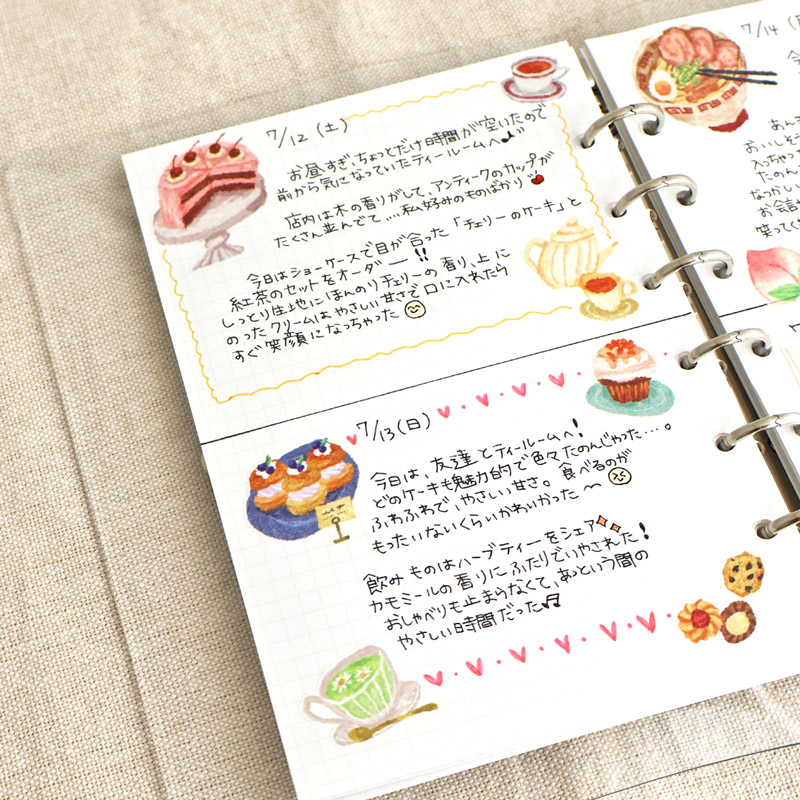 7/12(土)
お昼すぎ、ちょっとだけ時間が空いたので
前から気になっていたティールームへ♪
店内は木の香りがして、アンティークのカップが
たくさん並んでて…私好みのものばかり
今日はショーケースで目が合った「チェリーのケーキ」と
紅茶のセットをオーダー!!
しっとり生地にほんのりチェリーの香り、上に
のったクリームはやさしい甘さで口に入れたら
すぐ笑顔になっちゃった
7/13(日)
今日は、友達とティールームへ!
どのケーキも魅力的で色々たのんじゃった…。
ふわふわで、やさしい甘さ。食べるのが
もったいないくらいかわいかった～
飲みものはハーブティーをシェア
カモミールの香りにふたりでいやされた!
おしゃべりも止まらなくて、あっという間の
やさしい時間だった♫
7/14(
今
あん
おいしそう
入っちゃっ
たのん
なつかし
お会計
笑ってく
7